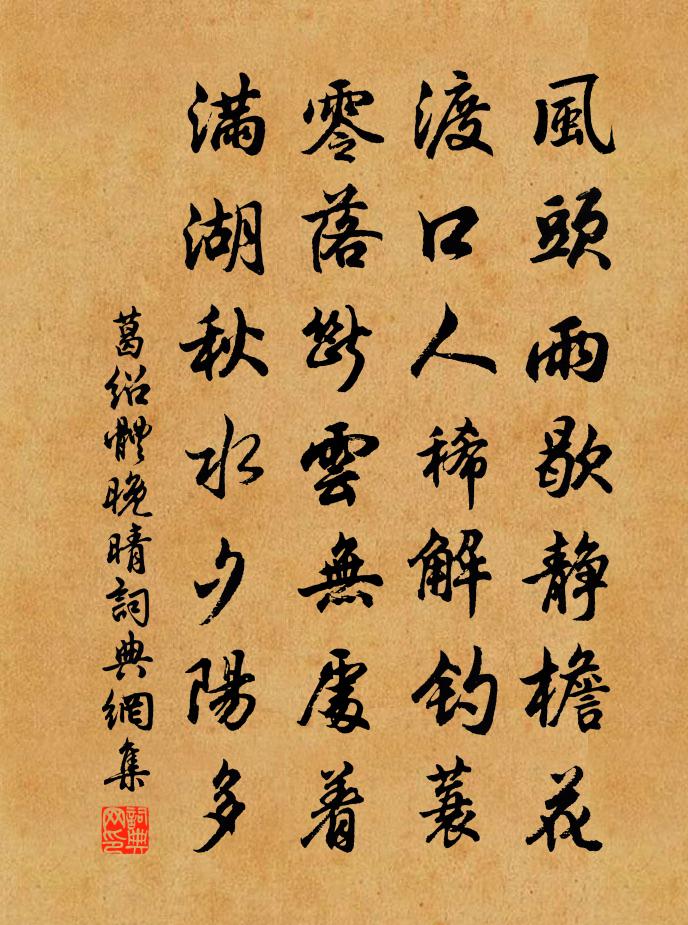 風頭雨歇静檐花
渡口人稀解釣蓑
零落斷雲無處着
滿湖秋水夕陽多
葛紹體晚晴詞典網集
詞典網印